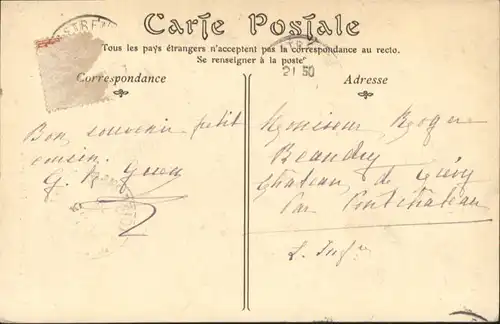 Carte Postale
Tous les pays étrangers n'acceptent pas la correspondance au recto.
Se renseigner à la poste
Correspondance
Adresse
21 50
Bon souvenir petit
cousin.
G.
Monsieur Roger
Beaudry
Château de
Par Pontchâteau
L. Infre